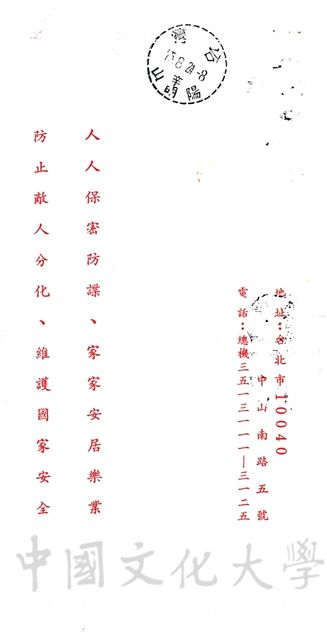 地址：台北市10040
中山南路五號
電話：總機三五一三一一一—三一二五
台灣
75.8.21-8
陽明山
人人保密防諜、家家安居樂業
防止敵人分化、維護國家安全
中國文化大學